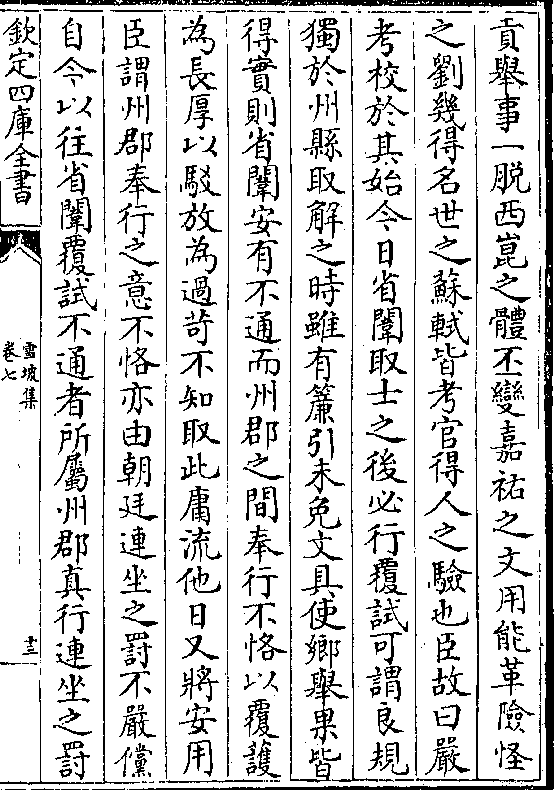 貢舉事一脱西崑之體丕變嘉祐之文用能革險怪
之劉幾得名世之蘇軾皆考官得人之驗也臣故曰嚴
考校於其始今日省闈取士之後必行覆試可謂良規
獨於州縣取解之時雖有簾引未免文具使鄉舉果皆
得實則省闈安有不通而州郡之間奉行不恪以覆護
為長厚以駁放為過苛不知取此庸流他日又將安用
臣謂州郡奉行之意不恪亦由朝廷連坐之罰不嚴儻
自今以往省闈覆試不通者所屬州郡真行連坐之罰
欽定四庫全書
雪坡集
卷七
十三